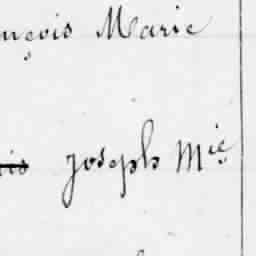 nçois Marie
is Joseph Mie